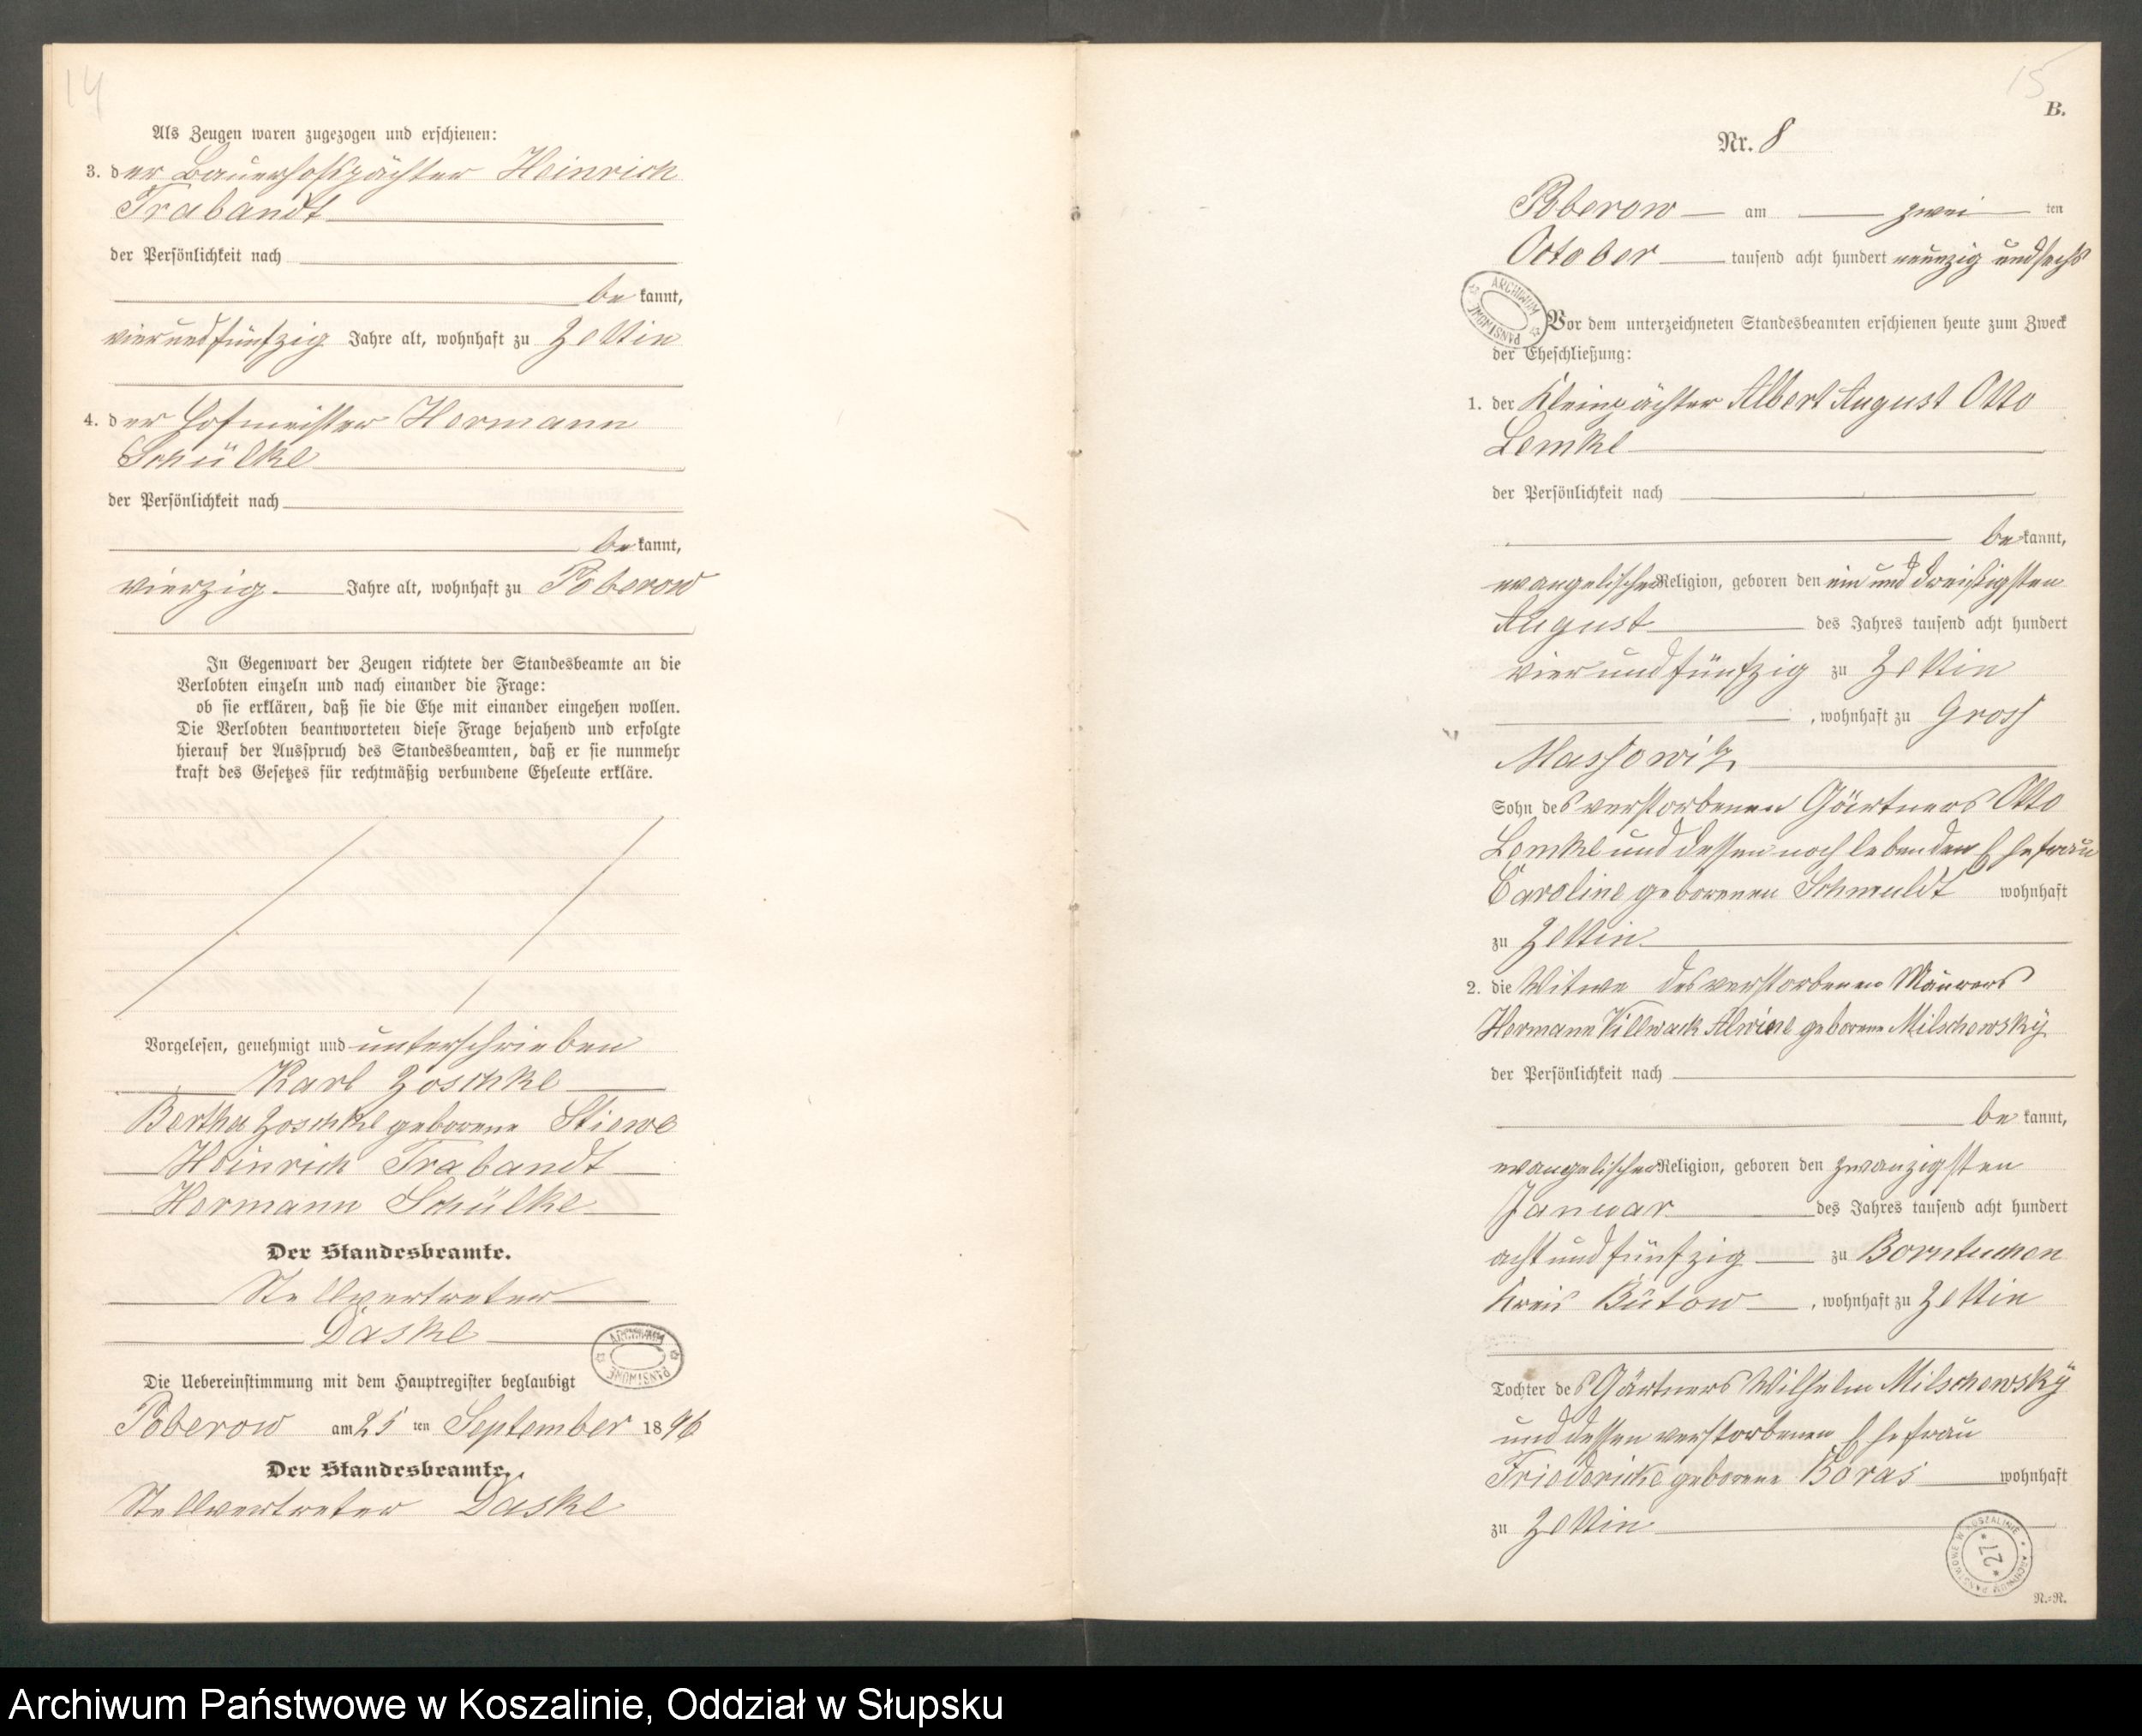 14
Als Zeugen waren zugezogen und erschienen:
3. der Bauerhofspächter Heinrich
Trabandt
der Persönlichkeit nach
be kannt,
vierundfünfzig Jahre alt, wohnhaft zu Zettin
4. der Hofmeister Hermann
Schülke
der Persönlichkeit nach
be kannt,
vierzig Jahre alt, wohnhaft zu Poberow
In Gegenwart der Zeugen richtete der Standesbeamte an die
Verlobten einzeln und nach einander die Frage:
ob sie erklären, daß sie die Ehe mit einander eingehen wollen.
Die Verlobten beantworteten diese Frage bejahend und erfolgte
hierauf der Ausspruch des Standesbeamten, daß er sie nunmehr
kraft des Gesetzes für rechtmäßig verbundene Eheleute erkläre.
Vorgelesen, genehmigt und unterschrieben
Karl Zoschke
Bertha Zoschke geborene Stiewe
Heinrich Trabandt
Hermann Schülke
Der Standesbeamte.
Stellvertreter
Daske
Die Uebereinstimmung mit dem Hauptregister beglaubigt
Poberow am 25 ten September 1896
Der Standesbeamte.
Stellvertreter Daske
15
B.
Nr. 8
Poberow am zwei ten
October tausend acht hundert neunzig und sechs
ARCHIWUM PAŃSTWOWE
Vor dem unterzeichneten Standesbeamten erschienen heute zum Zweck
der Eheschließung:
1. der Kleinpächter Albert August Otto
Lemke
der Persönlichkeit nach
be kannt,
evangelischer Religion, geboren den ein und dreißigsten
August des Jahres tausend acht hundert
vier und fünfzig zu Zettin
, wohnhaft zu Gross
Massowitz
Sohn des verstorbenen Gärtners Otto
Lemke und dessen noch lebenden Ehefrau
Caroline geborenen Schmuldt wohnhaft
zu Zettin
2. die Witwe des verstorbenen Maurers
Hermann Villwack Alwine geborene Milschewsky
der Persönlichkeit nach
be kannt,
evangelischer Religion, geboren den zwanzigsten
Januar des Jahres tausend acht hundert
acht und fünfzig zu Borntuchen
Kreis Bütow, wohnhaft zu Zettin
Tochter des Gärtners Wilhelm Milschewsky
und dessen verstorbenen Ehefrau
Friedericke geborene Boras wohnhaft
zu Zettin
ARCHIWUM PAŃSTWOWE W KOSZALINIE * 27 *
N.-R.
Archiwum Państwowe w Koszalinie, Oddział w Słupsku